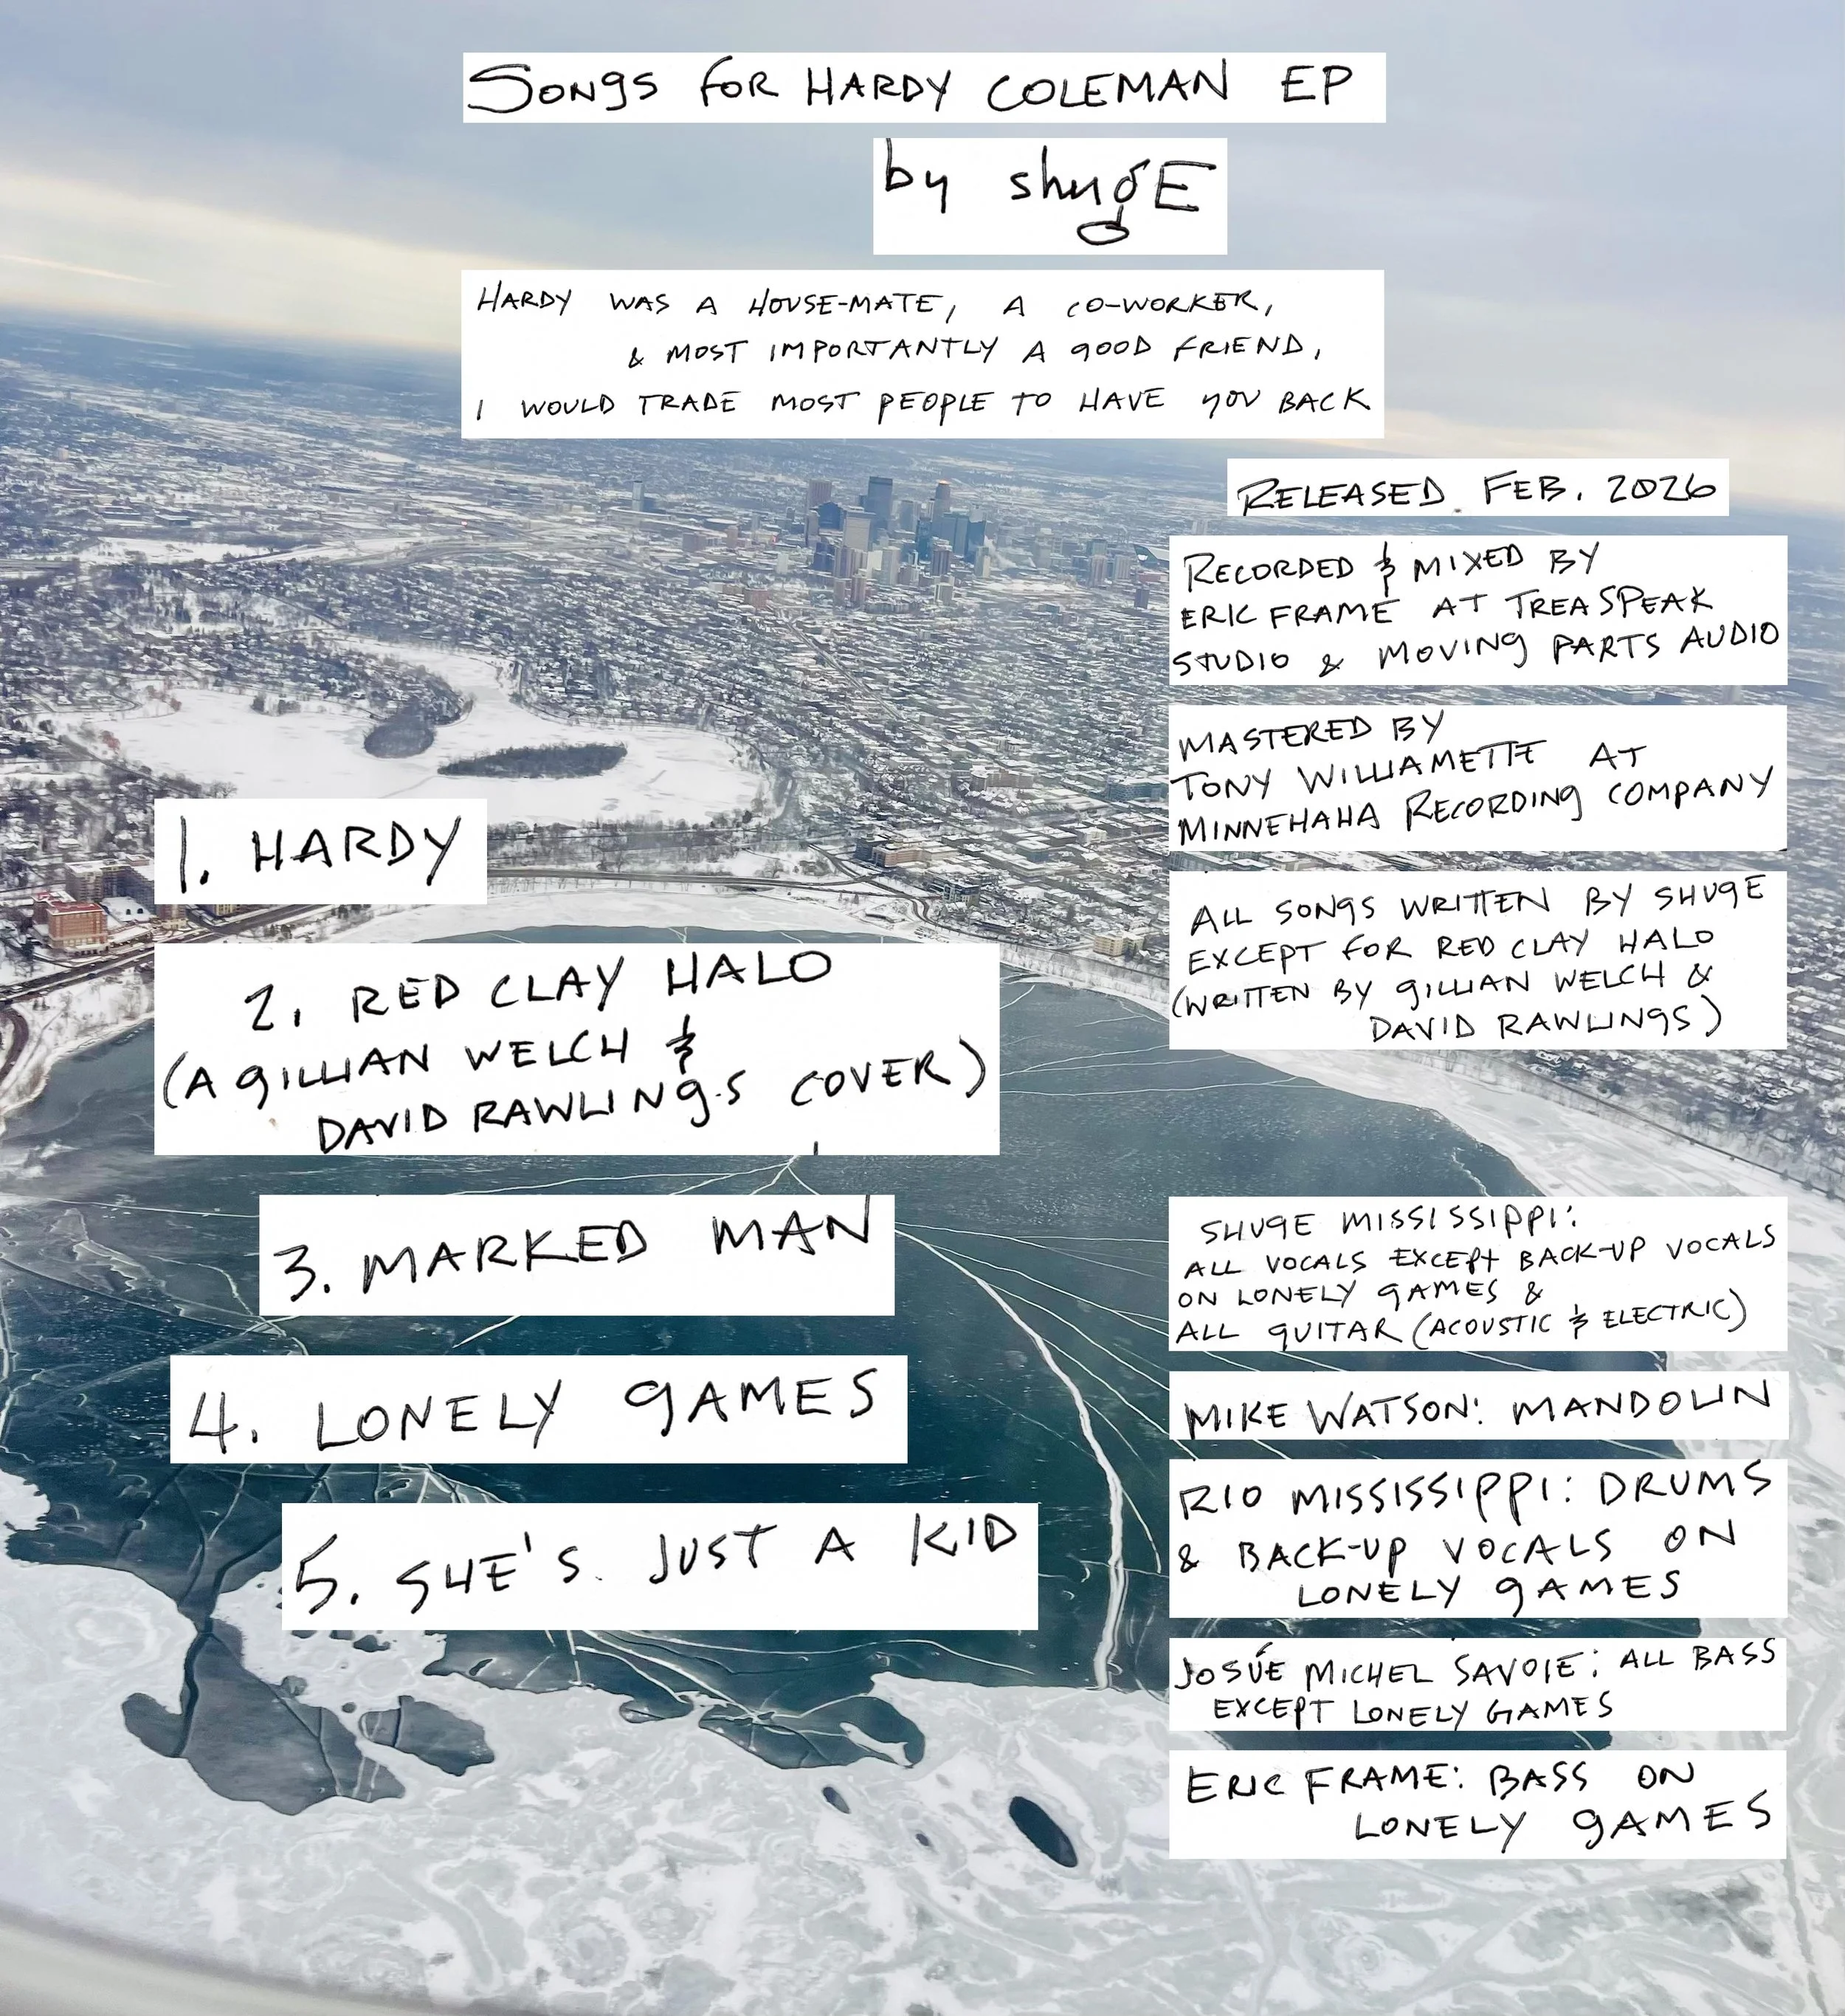 SONgS FOR HARDY COLEMAN EP
by shugE
HARDY WAS A HOUSE-MATE, A CO-WORKER,
& MOST IMPORTANTLY A gOOD FRIEND,
I WOULD TRADE MOST PEOPLE TO HAVE YOU BACK
RELEASED FEB. 2026
RECORDED & MIXED BY
ERIC FRAME AT TREASPEAK
STUDIO & MOVINg PARTS AUDIO
MASTERED BY
TONY WILLIAMETTE AT
MINNEHAHA RECORDINg COMPANY
ALL SONgS WRITTEN BY SHUgE
EXCEPT FOR RED CLAY HALO
(WRITTEN BY gILLIAN WELCH &
DAVID RAWLINgS)
1. HARDY
2. RED CLAY HALO
(A gILLIAN WELCH &
DAVID RAWLINgS COVER)
3. MARKED MAN
4. LONELY gAMES
5. SHE'S JUST A KID
SHUgE MISSISSIPPI:
ALL VOCALS EXCEPt BACK-UP VOCALS
ON LONELY gAMES &
ALL gUITAR (ACOUSTIC & ELECTRIC)
MIKE WATSON: MANDOLIN
RIO MISSISSIPPI: DRUMS
& BACK-UP VOCALS ON
LONELY gAMES
JOSÚE MICHEL SAVOIE: ALL BASS
EXCEPT LONELY GAMES
ERIC FRAME: BASS ON
LONELY gAMES